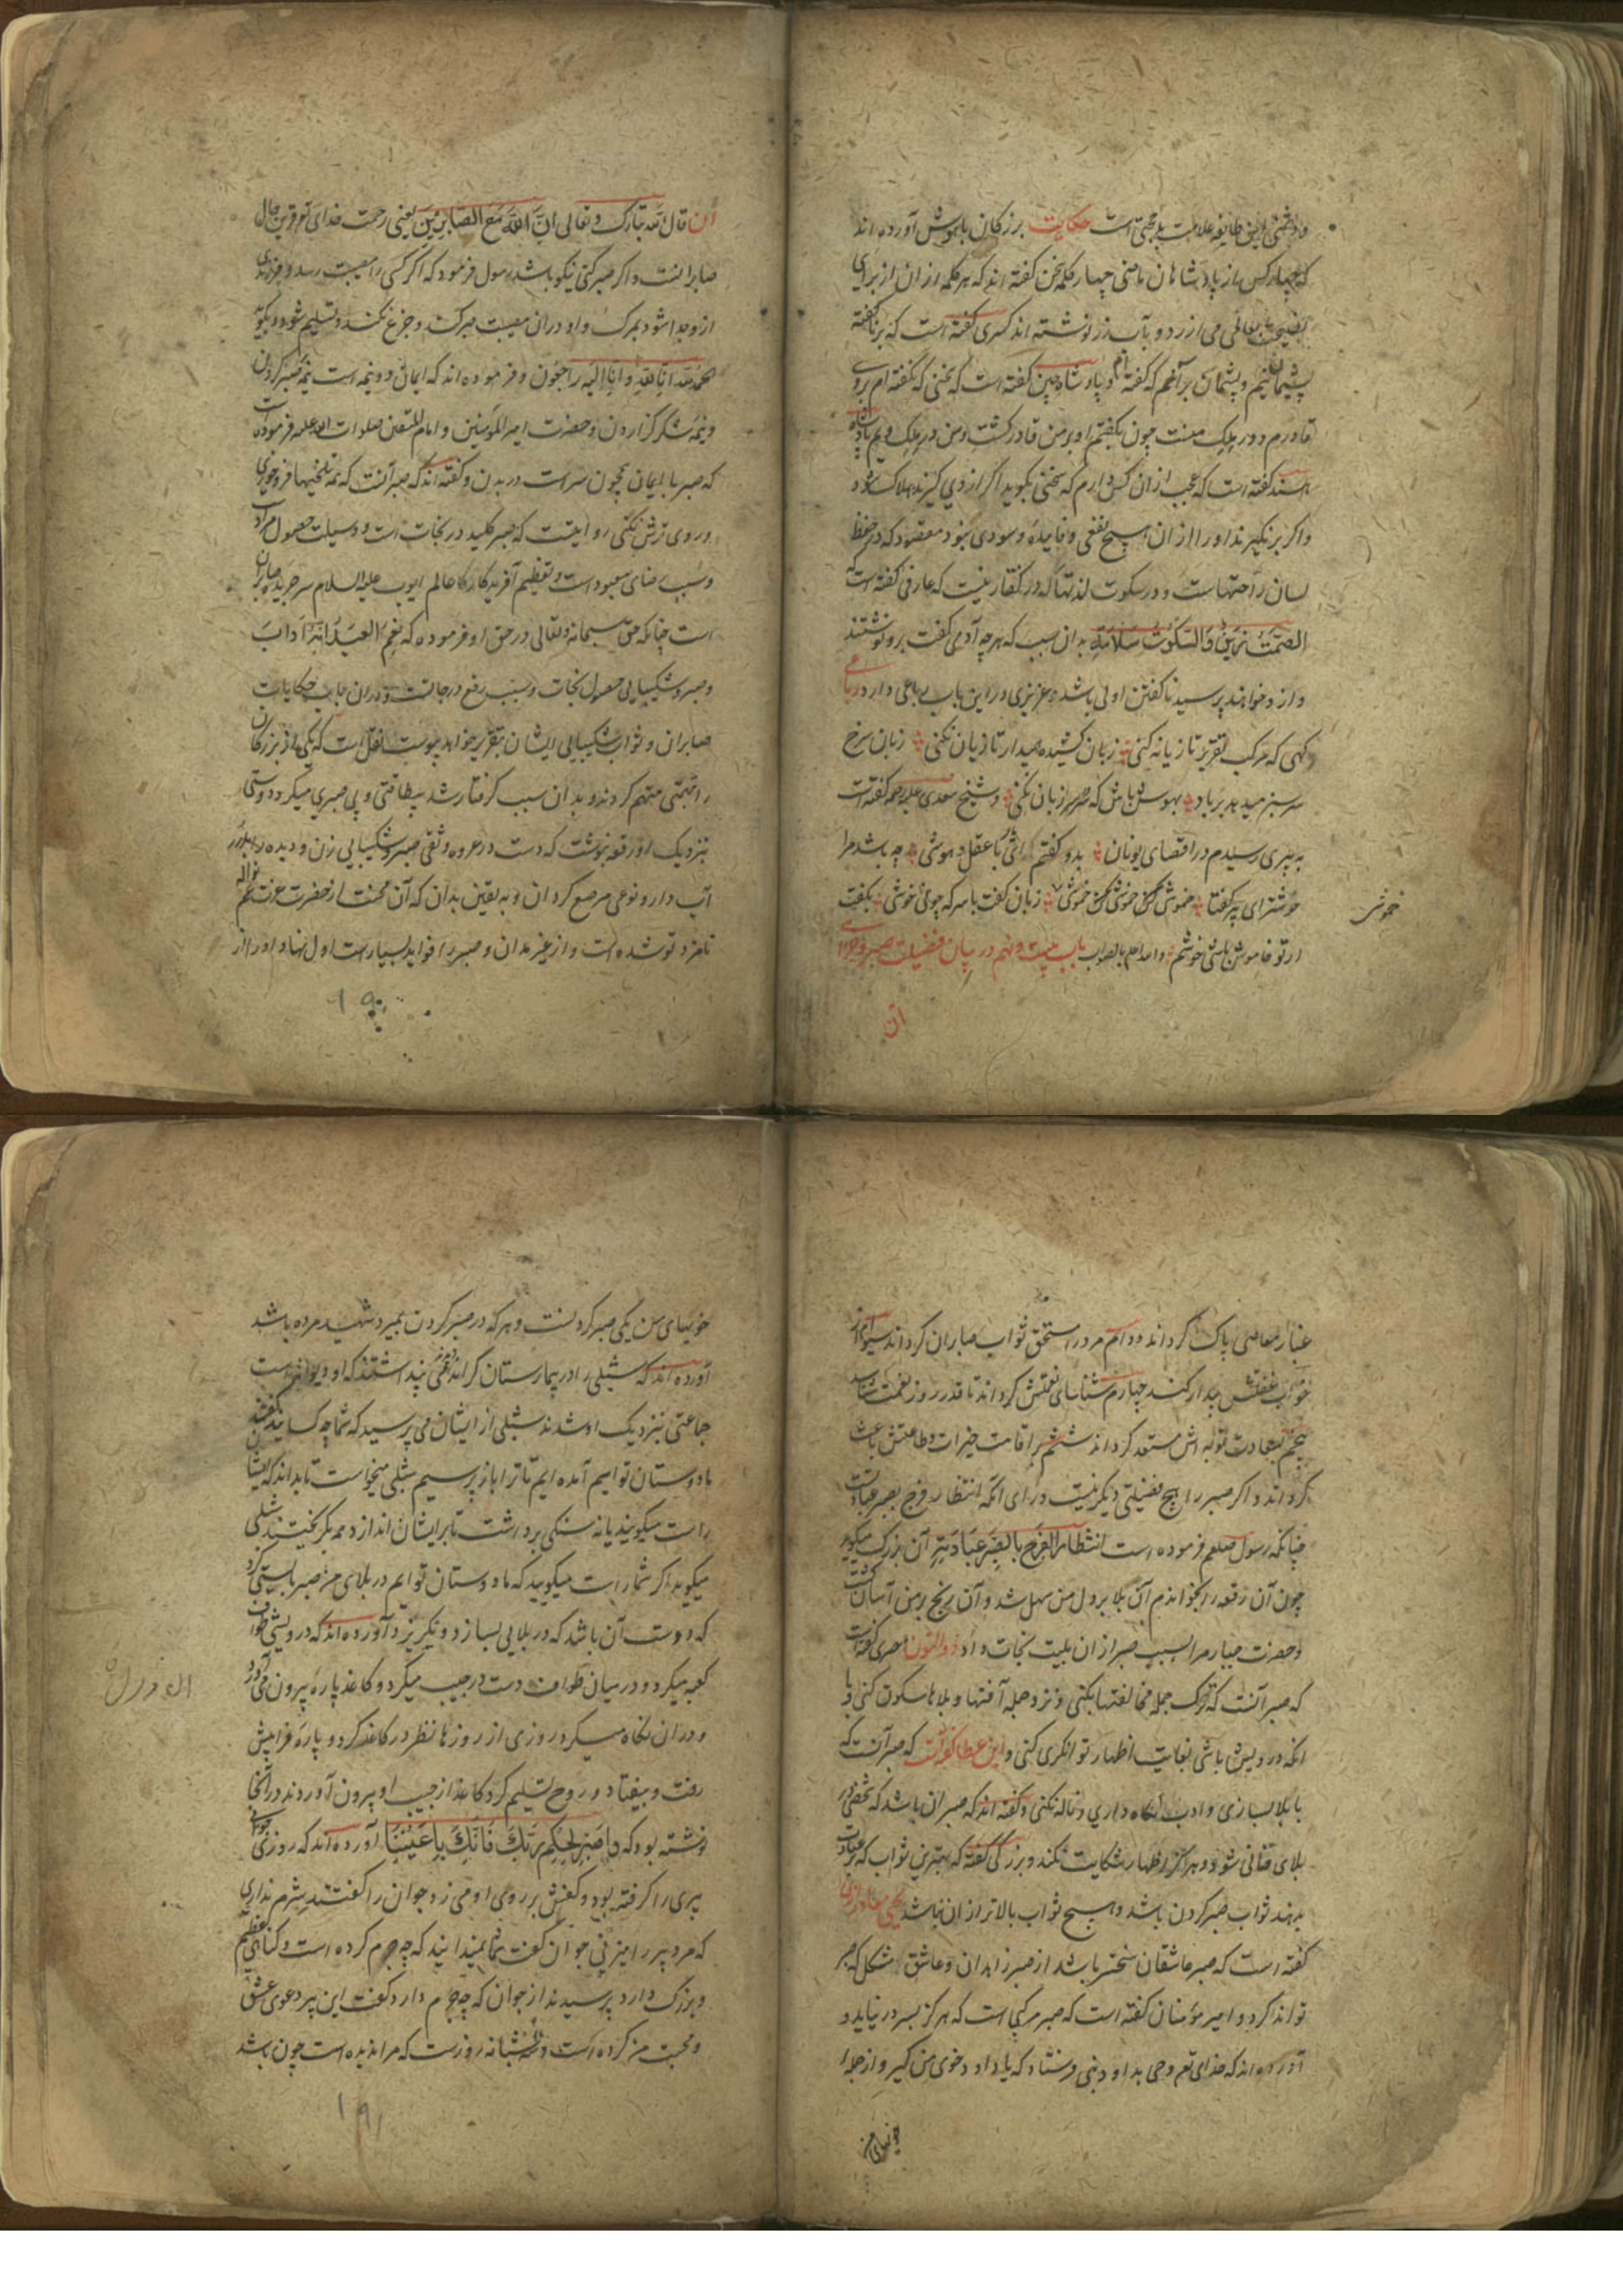 و دشمنی این طایفه علامت بدبختی است حکایت بزرگان باهوش آورده اند
که چهار کس از پادشاهان ماضی چهار کلمه سخن گفته اند که هر کلمه ازان از برای
نصیحت عالمی می ارزد و بآب زر نوشته اند کسری گفته است که بر ناگفته
پشیمان نیم و پشیمان برآنم که گفته ام و پادشاه چین گفته است که سخنی که نگفته ام بروی
قادرم و در ملک منست چون بگفتم او بر من قادر گشت و من در ملک ویم پادشاه
هند گفته است که عجب ازان کس دارم که سخنی بگوید اگر از وی گیرند هلاک شود
و اگر برنگیرند اورا ازان هیچ نفعی و فایده و سودی نبود مقصود که در حفظ
لسان راحتهاست و در سکوت لذتها که در گفتار نیست که عارفی گفته است که
الصمت زین والسکوت سلامة بدان سبب که هرچه آدمی گفت برو نوشتند
و ازو خواهند پرسید ناگفتن اولی باشد و عزیزی دراین باب رباعی دارد رباعی
گهی که مرکب تقریر تازیانه کنی زبان کشیده میدار تا زیان نکنی زبان سرخ
سر سبز میدهد برباد بهوش باش که سر در سر زبان نکنی و شیخ سعدی علیه الرحمه گفته است
به پیری رسیدم در اقصای یونان بدو گفتم ای باعقل و هوشی چه باشد مرا
خوشتر ای پیر گفتا خموشی خموشی خموشی زبان گفت با سر که چونی خوشی بگفت
ار تو خاموش باشی خوشم و الله اعلم بالصواب باب بیست و نهم در بیان فضیلت صبر و جزای
خموشی
آن
آن قال الله تبارک و تعالی ان الله مع الصابرین یعنی رحمت خدای تع قرین حال
صابرانست و اگر صبر کنی نیکو باشد رسول فرمود که اگر کسی را مصیبت رسد و فرزندی
ازو جدا شود بمرگ و او دران مصیبت صبر کند و جزع نکند و تسلیم شود و بگوید
الحمد لله انا لله و انا الیه راجعون و فرموده اند که ایمان دو نیمه است نیمه صبر کردن
و نیمه شکر گزاردن و حضرت امیر المومنین و امام المتقین صلوات الله علیه فرموده است
که صبر با ایمان همچون سر است در بدن و گفته اند که صبر آنست که همه تلخیها فرو خوری
و روی ترش نکنی روایتست که صبر کلید در نجات است و وسیلت حصول مرادات
و سبب رضای معبود است و تعظیم آفریدکار عالم ایوب علیه السلام سر جریده صابران
است چنانکه حق سبحانه و تعالی در حق او فرموده که نعم العبد انه اواب
و صبر و شکیبایی حصول نجات و سبب رفع درجاتست و دران باب حکایات
صابران و ثواب شکیبایی ایشان بتقریر خواهد پیوست نقل است که یکی از بزرگان
را بتهمتی متهم کردند و بدان سبب گرفتار شد بیطاقتی و بی صبری میکرد دوستی
بنزدیک او رقعه نوشت که دست در عروه وثقی صبر و شکیبایی زن و دیده را بدار
آب دار و نوعی مرصع گردان و به یقین بدان که آن محنت از حضرت عزت عم نواله
نامزد تو شده است و از غیر مدان و صبر را فواید بسیارست اول نهاد او را از
۱۹۰
غبار معاصی پاک گرداند دوم مرورا مستحق ثواب صابران گرداند سیوم از
خواب غفلتش بیدار کند چهارم شناسای نعمتش گرداند تا قدر روز نعمت شناسد
پنجم بسعادت توبه اش مستعد گرداند ششم بر اقامت خیرات و طاعتش باعث
گرداند و اگر صبر را هیچ فضیلتی دیگر نیست ورای آنکه انتظار فرج بصبر عبادتست
چنانکه رسول صلعم فرموده است انتظار الفرج بالصبر عبادة آن بزرگ میگوید
چون آن رقعه را بخواندم آن بلا بر دل من سهل شد و آن رنج بر من آسان گشت
و حضرت جبار مرا بسبب صبر ازان بلیت نجات داد ذوالنون مصری گفته است
که صبر آنست که ترک جمله مخالفتها بکنی و نزد جمله آفتها و بلاها سکون کنی و با
آنکه درویش باشی بغایت اظهار توانگری کنی و ابن عطا گوید که صبر آنست که
با بلا بسازی و ادب نگاه داری و ناله نکنی و گفته اند که صبر آن باشد که شخص در
بلای فانی شود و هرگز اظهار شکایت نکند و بزرگی گفته که بهترین ثواب که بر عبادت
بدهند ثواب صبر کردن باشد و هیچ ثواب بالاتر ازان نباشد یحیی معاذ رازی
گفته است که صبر عاشقان سختر باشد از صبر زاهدان و عاشق مشکل که صبر
تواند کرد و امیر مؤمنان گفته است که صبر مرکبی است که هرگز بسر در نیاید و
آورده اند که خدای تع وحی بداود نبی فرستاد که یا داود خوی من گیر و از جمله
خویهای من
خویهای من یکی صبر کردنست و هر که در صبر کردن بمیرد شهید مرده باشد
آورده اند که شبلی را در بیمارستان کردند قومی پنداشتند که او دیوانه است
جماعتی بنزدیک او شدند شبلی از ایشان می پرسید که شما چه کسانید گفتند
ما دوستان توایم آمده ایم تا ترا باز پرسیم شبلی میخواست تا بداند که ایشان
راست میگویند یا نه سنگی برداشت تا بر ایشان اندازد همه بگریختند شبلی
میگوید اگر شما راست میگویید که ما دوستان توایم در بلای من صبر بایستی کرد
که دوست آن باشد که در بلایی بسازد و نگریزد آورده اند که درویشی طواف
کعبه میکرد و در میان طواف دست در جیب میکرد و کاغذ پاره بیرون می آورد
و دران نگاه میکرد روزی از روزها نظر در کاغذ کرد و پاره فرا پیش
رفت و بیفتاد و روح تسلیم کرد کاغذ از جیب او بیرون آوردند در آنجا
نوشته بود که واصبر لحکم ربک فانک باعیننا آورده اند که روزی جوانی
پیری را گرفته بود و کفش بر روی او می زد جوان را گفتند شرم نداری
که مرد پیر را میزنی جوان گفت شما نمیدانید که چه جرم کرده است و گناهی عظیم
و بزرگ دارد پرسیدند از جوان که چه جرم دارد گفت این پیر دعوی عشق
و محبت من کرده است و سه شبانه روزست که مرا ندیده است چون باشد
۱۹۱